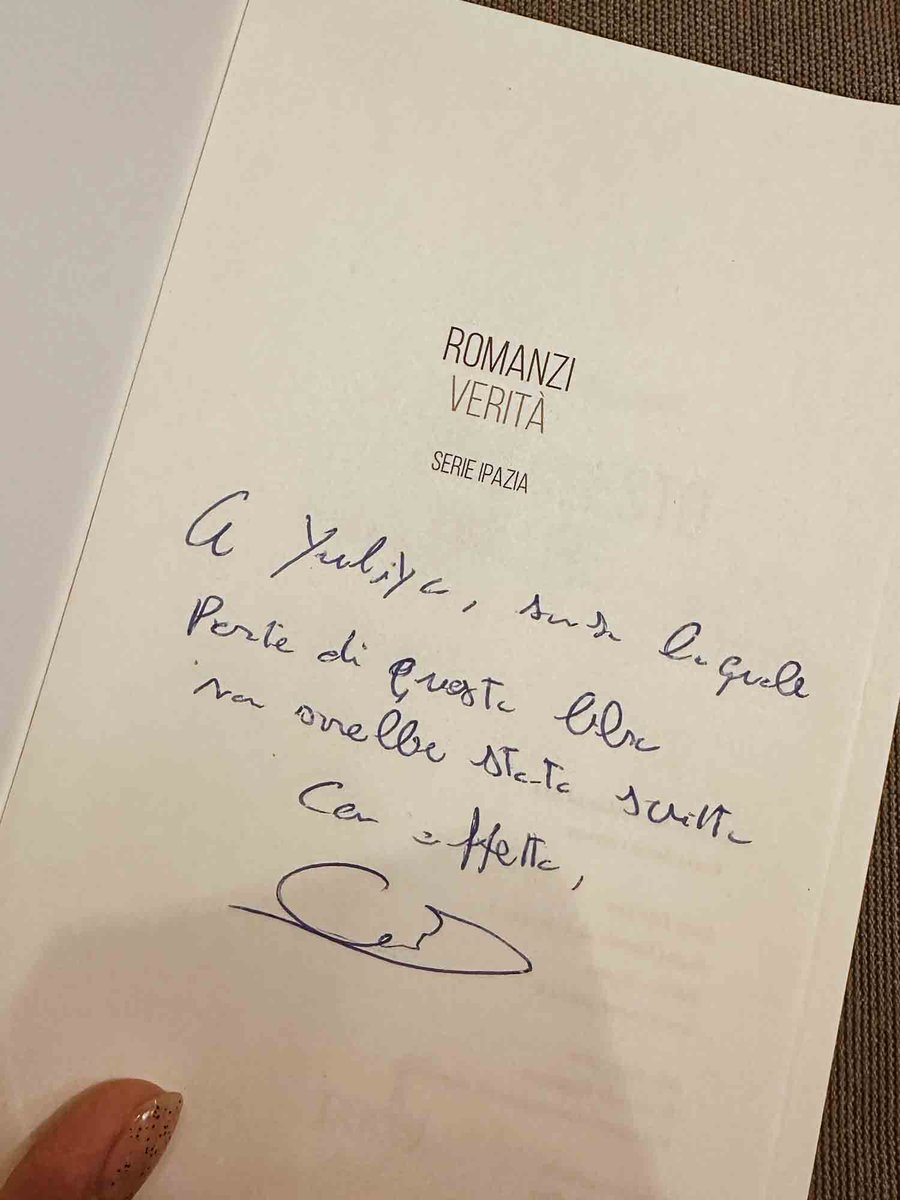 ROMANZI
VERITÀ
SERIE IPAZIA
A Yuliya, senza la quale
Parte di questo libro
non sarebbe stata scritta
Con affetto,